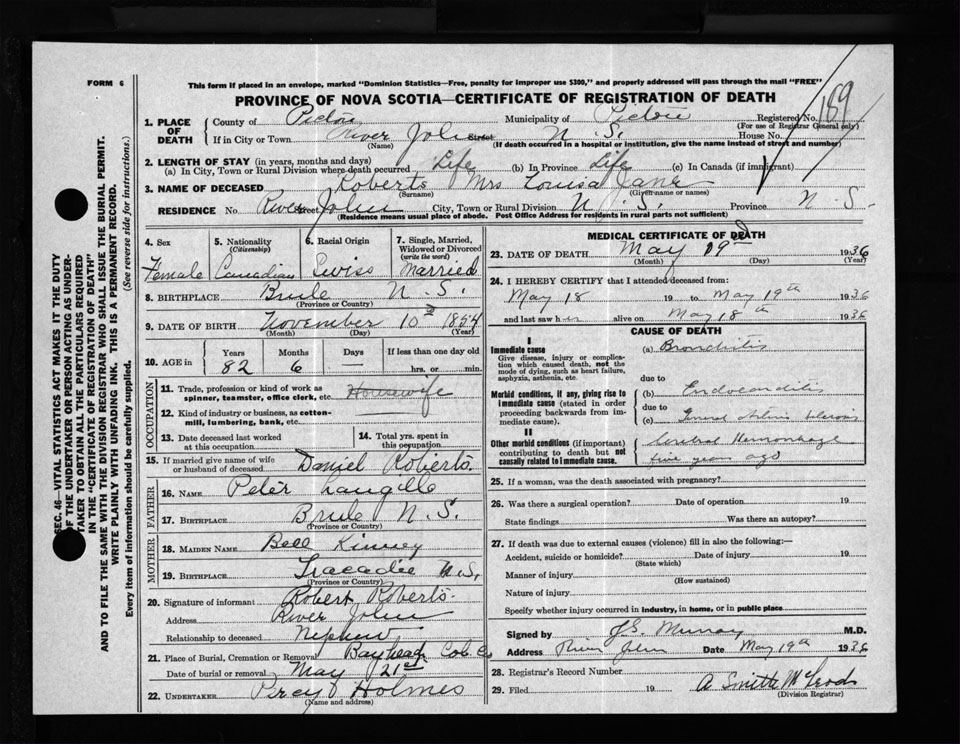 FORM 6
This form if placed in an envelope, marked "Dominion Statistics—Free, penalty for improper use $300," and properly addressed will pass through the mail "FREE"
PROVINCE OF NOVA SCOTIA—CERTIFICATE OF REGISTRATION OF DEATH
189
1. PLACE OF DEATH
County of Pictou
Municipality of Pictou
Registered No.
(For use of Registrar General only)
If in City or Town River John Street N.S. House No.
(Name) (If death occurred in a hospital or institution, give the name instead of street and number)
2. LENGTH OF STAY (in years, months and days)
(a) In City, Town or Rural Division where death occurred Life (b) In Province Life (c) In Canada (if immigrant)
3. NAME OF DECEASED Roberts Mrs Louisa Jane
(Surname) (Given name or names)
RESIDENCE No. River Street John City, Town or Rural Division N.S. Province N.S.
(Residence means usual place of abode. Post Office Address for residents in rural parts not sufficient)
4. Sex
Female
5. Nationality
(Citizenship)
Canadian
6. Racial Origin
Swiss
7. Single, Married, Widowed or Divorced
(write the word)
Married
8. BIRTHPLACE Brule N.S.
(Province or Country)
9. DATE OF BIRTH November 10th 1854
(Month) (Day) (Year)
10. AGE in
Years
82
Months
6
Days
—
If less than one day old
hrs. or min.
OCCUPATION
11. Trade, profession or kind of work as spinner, teamster, office clerk, etc. Housewife
12. Kind of industry or business, as cotton-mill, lumbering, bank, etc.
13. Date deceased last worked at this occupation
14. Total yrs. spent in this occupation
15. If married give name of wife or husband of deceased Daniel Roberts.
FATHER
16. NAME Peter Langille
17. BIRTHPLACE Brule N.S.
(Province or Country)
MOTHER
18. MAIDEN NAME Bell Kinney
19. BIRTHPLACE Tracadie N.S.
(Province or Country)
20. Signature of informant Robert Roberts.
Address River John
Relationship to deceased Nephew
21. Place of Burial, Cremation or Removal Bayhead Col. Co
Date of burial or removal May 21st
22. UNDERTAKER Percy Holmes
(Name and address)
MEDICAL CERTIFICATE OF DEATH
23. DATE OF DEATH May 19 1936
(Month) (Day) (Year)
24. I HEREBY CERTIFY that I attended deceased from:
May 18 19 to May 19th 1936
and last saw her alive on May 18th 1936
CAUSE OF DEATH
I
Immediate cause
Give disease, injury or complication which caused death, not the mode of dying, such as heart failure, asphyxia, asthenia, etc.
(a) Bronchitis
due to
Morbid conditions, if any, giving rise to immediate cause (stated in order proceeding backwards from immediate cause).
(b) Endocarditis
due to
(c) General Arterio sclerosis
II
Other morbid conditions (if important) contributing to death but not causally related to immediate cause.
Cerebral Hemorrhage
five years ago
25. If a woman, was the death associated with pregnancy?
26. Was there a surgical operation? Date of operation 19
State findings Was there an autopsy?
27. If death was due to external causes (violence) fill in also the following:—
Accident, suicide or homicide? Date of injury 19
(State which)
Manner of injury
(How sustained)
Nature of injury
Specify whether injury occurred in industry, in home, or in public place
Signed by J.G. Murray M.D.
Address River John Date May 19th 1936
28. Registrar's Record Number
29. Filed 19 A Smith McLeod
(Division Registrar)
SEC. 46—VITAL STATISTICS ACT MAKES IT THE DUTY
OF THE UNDERTAKER OR PERSON ACTING AS UNDER-
TAKER TO OBTAIN ALL THE PARTICULARS REQUIRED
IN THE "CERTIFICATE OF REGISTRATION OF DEATH"
AND TO FILE THE SAME WITH THE DIVISION REGISTRAR WHO SHALL ISSUE THE BURIAL PERMIT.
WRITE PLAINLY WITH UNFADING INK. THIS IS A PERMANENT RECORD.
Every item of information should be carefully supplied. (See reverse side for instructions.)